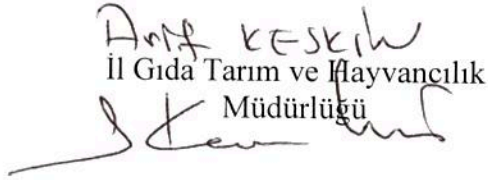 Arif KESKİN
İl Gıda Tarım ve Hayvancılık
Müdürlüğü